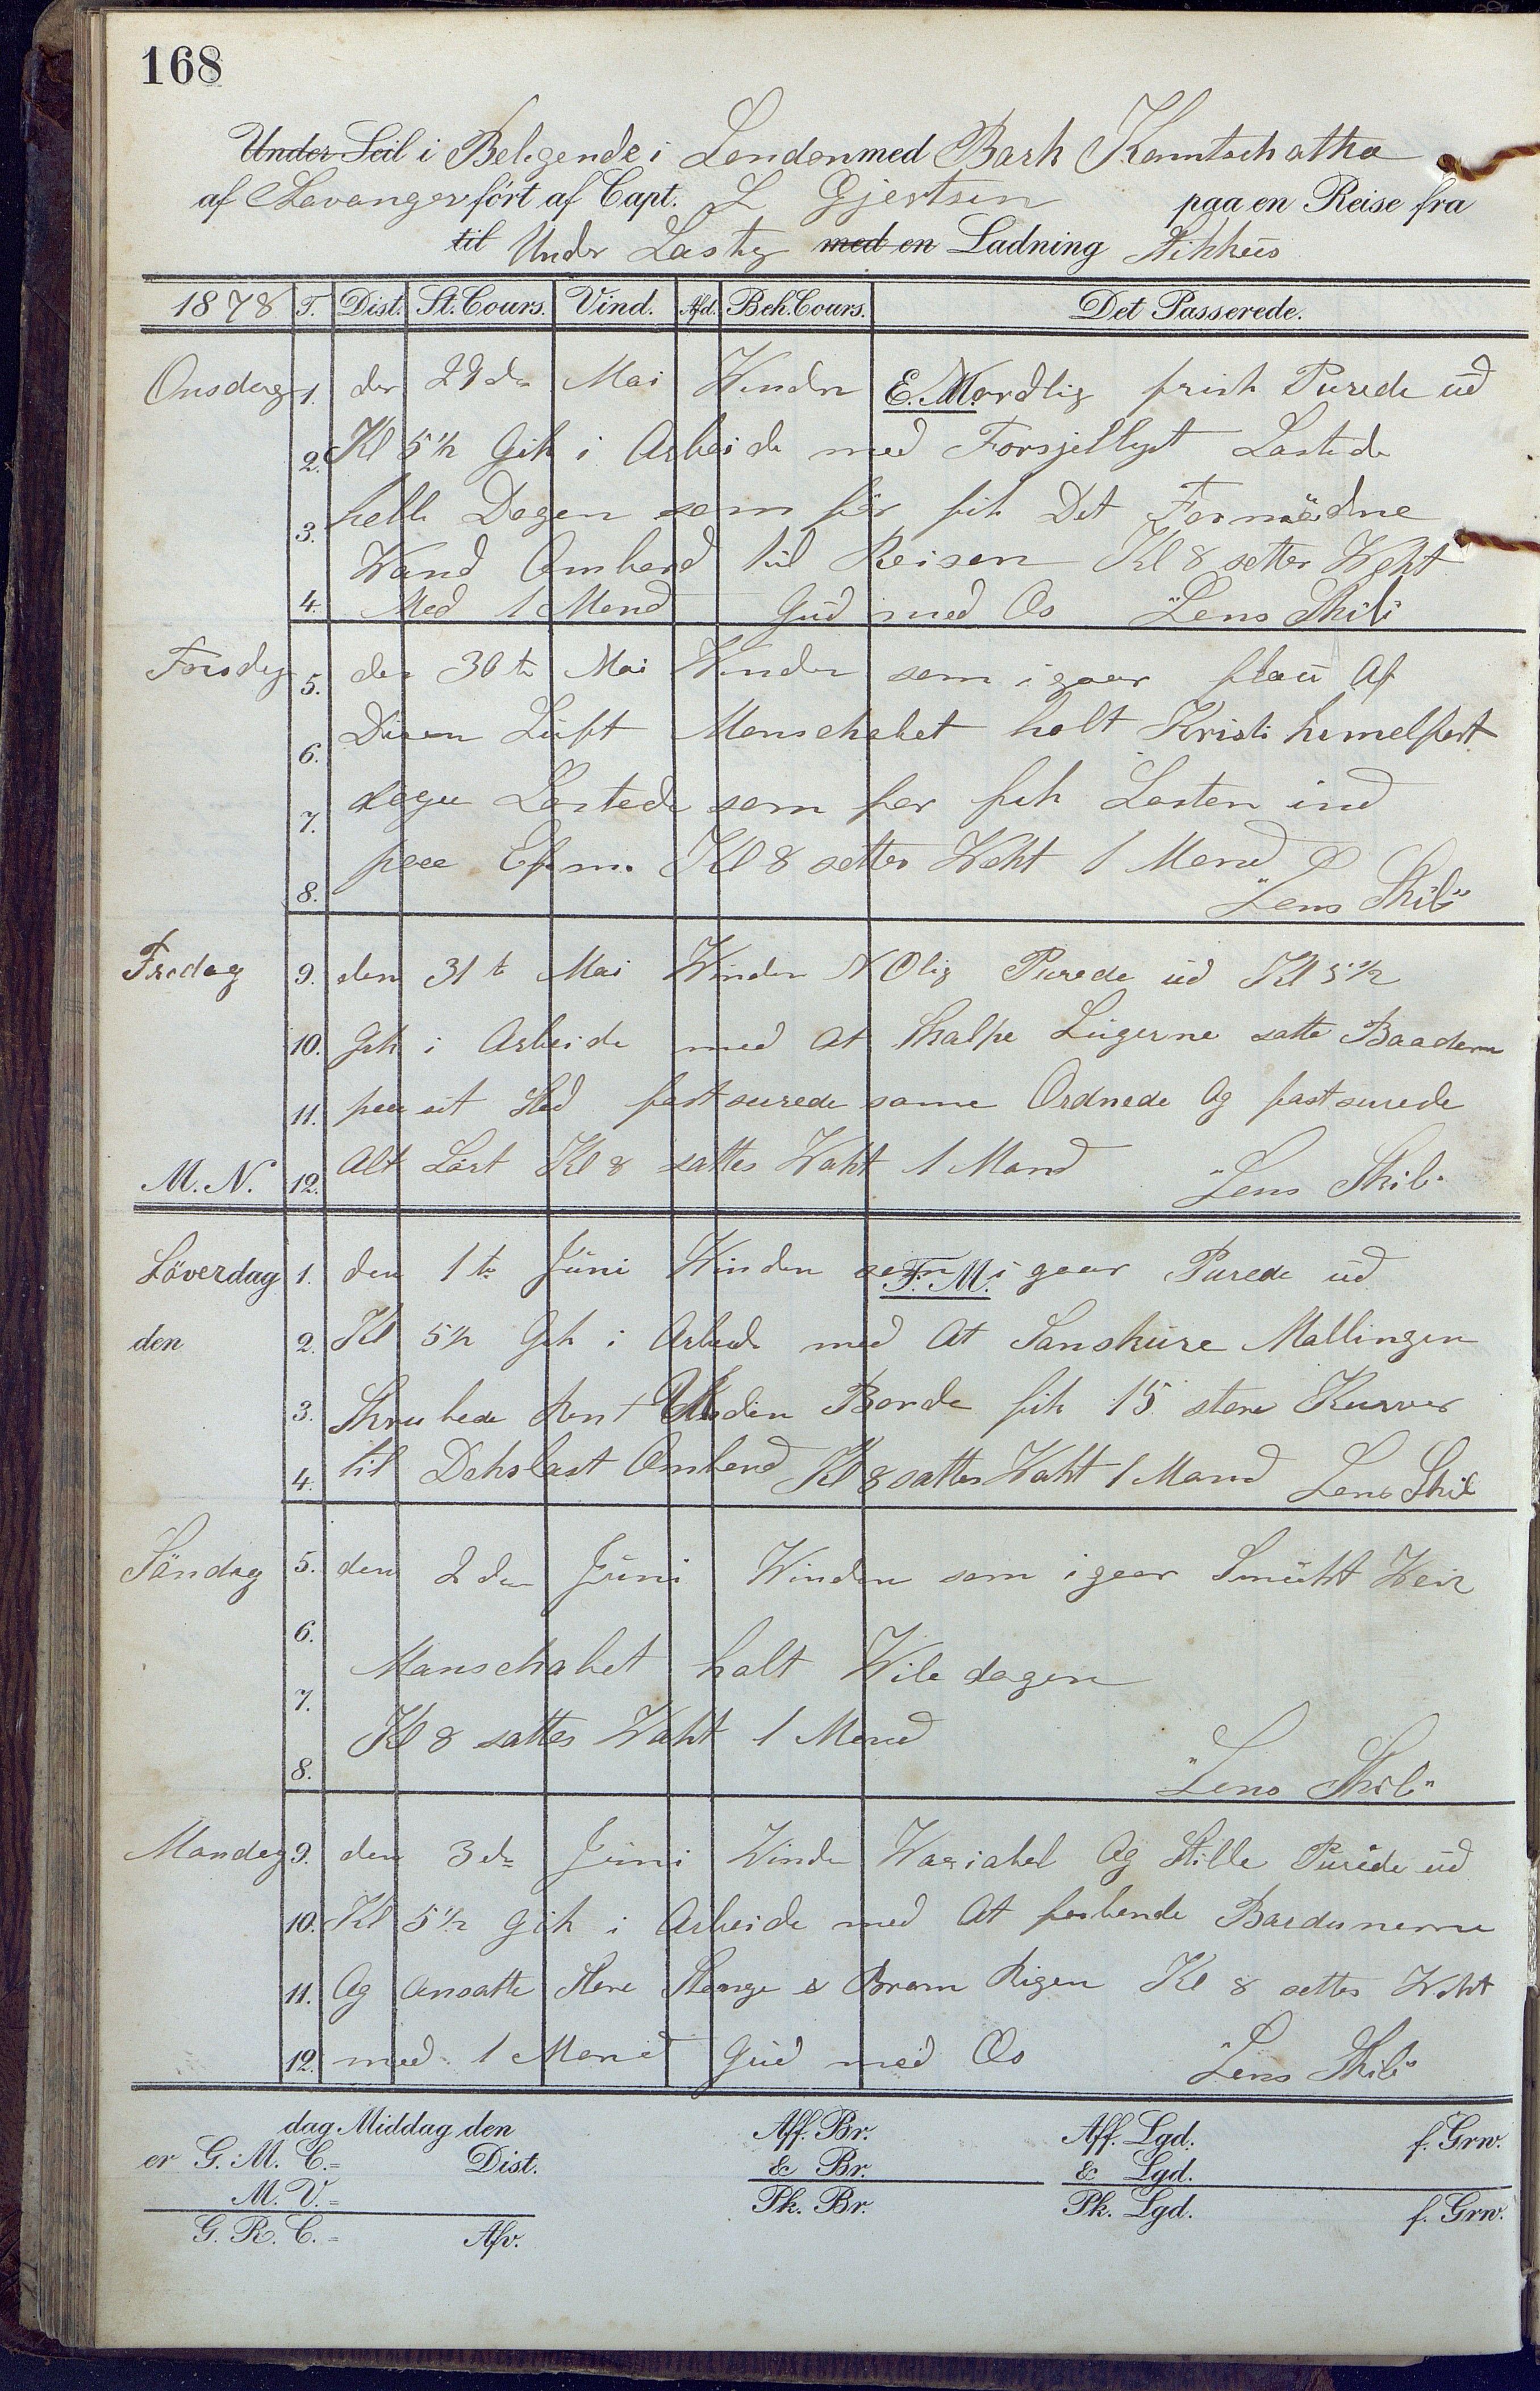 168
Under Seil i Beligende i London med Bark Kamtschatka
af Stavanger ført af Capt. L Gjertsen paa en Reise fra
til Under Lastig med en Ladning Stikkus
1878 T. Dist. St. Cours. Vind. Afd. Beh. Cours. Det Passerede.
Onsdag 1. den 29de Mai Winden E.M. Nordlig frisk Purede ud
2. Kl 5 1/2 Gik i Arbeide med Forsjelligt Lastede
3. hele Dagen som før fik Det Fornødne
Wand Ombord til Reisen Kl 8 sattes Wakt
4. Med 1 Mand Gud med Os "Lens Skib
Torsdag 5. den 30te Mai Winden som igaar flau Af
6. Disen Luft Manschabet holt Kristi himelfart
7. dagen Lastede som før fik Lasten ind
8. paa Efm. Kl 8 sattes Wakt 1 Mand
"Lens Skib"
Fredag 9. den 31te Mai Winden N Olig Purede ud Kl 5 1/2
10. Gik i Arbeide med At Skalpe Lugerne satte Baadene
11. paa sit Sted fastsurede same Ordnede Og fastsurede
M. N. 12. Alt Løst Kl 8 sattes Wakt 1 Mand "Lens Skib"
Löverdag 1. den 1te Juni Winden som F. M. igaar Purede ud
den 2. Kl 5 1/2 Gik i Arbeide med At Sanskure Mallingen
3. Skrubede Rent Uden Borde fik 15 store Kurver
4. til Dekslast Ombord Kl 8 sattes Wakt 1 Mand Lens Skib
Söndag 5. den 2den Juni Winden som igaar Smukt Weir
6.
Manschabet holt Wiledagen
7.
Kl 8 sattes Wakt 1 Mand
8.
"Lens Skib"
Mandag 9. den 3de Juni Winden Wariabel Og Stille Purede ud
10. Kl 5 1/2 Gik i Arbeide med At forbende Bardunerne
11. Og Ansatte Store Stange & Bram Rigen Kl 8 sattes Wakt
12. med 1 Mand Gud med Os "Lens Skib"
dag Middag den Aff. Br. Aff. Lgd. f. Grw.
er G. M. C.= Dist. & Br. & Lgd.
M. V.= Pk. Br. Pk. Lgd. f. Grw.
G. R. C.= Afv.